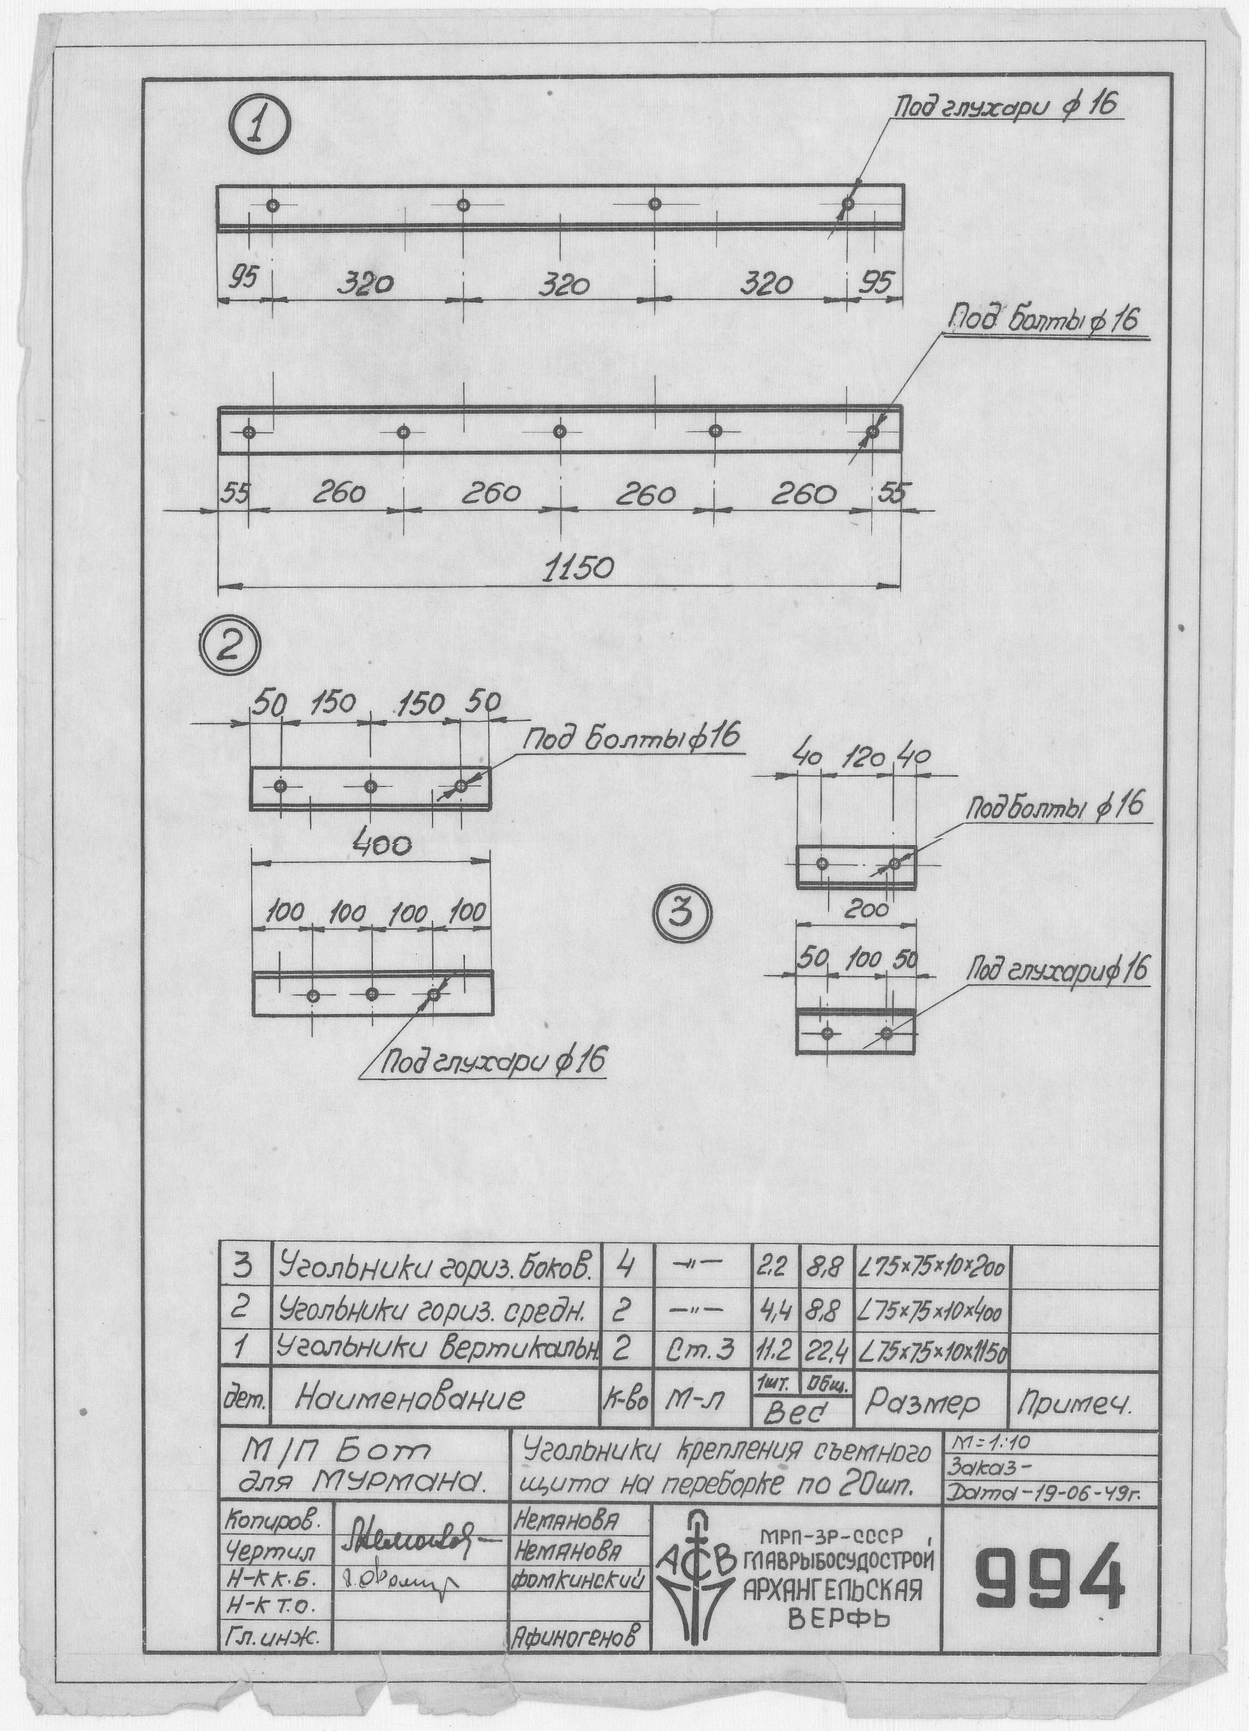 1
Под глухари ϕ 16
95 320 320 320 95
Под болты ϕ 16
55 260 260 260 260 55
1150
2
50 150 150 50
Под болты ϕ 16
400
100 100 100 100
Под глухари ϕ 16
3
40 120 40
Под болты ϕ 16
200
50 100 50
Под глухари ϕ 16
3 Угольники гориз. боков. 4 —"— 2,2 8,8 ∠75×75×10×200
2 Угольники гориз. средн. 2 —"— 4,4 8,8 ∠75×75×10×400
1 Угольники вертикальн. 2 Ст. 3 11.2 22,4 ∠75×75×10×1150
дет. Наименование к-во М-л 1шт. Общ. Вес Размер Примеч.
М/П Бот
для Мурмана.
Угольники крепления съемного
щита на переборке по 20шп.
М=1:10
Заказ-
Дата-19-06-49г.
Копиров. Неманова
Чертил Неманова
Н-К К.Б. Фомкинский
Н-К Т.О.
Гл. инж. Афиногенов
АСВ
МРП-ЗР-СССР
ГЛАВРЫБОСУДОСТРОЙ
АРХАНГЕЛЬСКАЯ
ВЕРФЬ
994